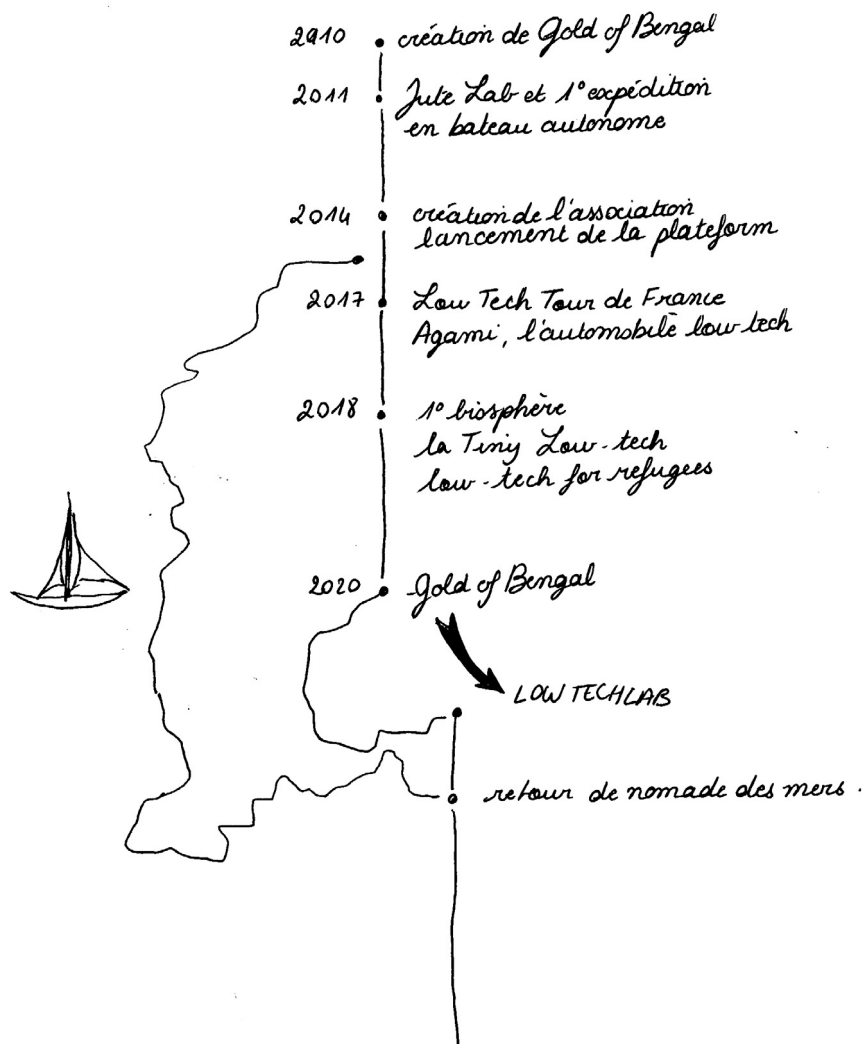 2010 création de Gold of Bengal
2011 Jute Lab et 1° expédition
en bateau autonome
2014 création de l'association
lancement de la plateform
2017 Low Tech Tour de France
Agami, l'automobile low-tech
2018 1° biosphère
la Tiny Low-tech
low-tech for refugees
2020 Gold of Bengal
LOW TECH LAB
retour de nomade des mers.